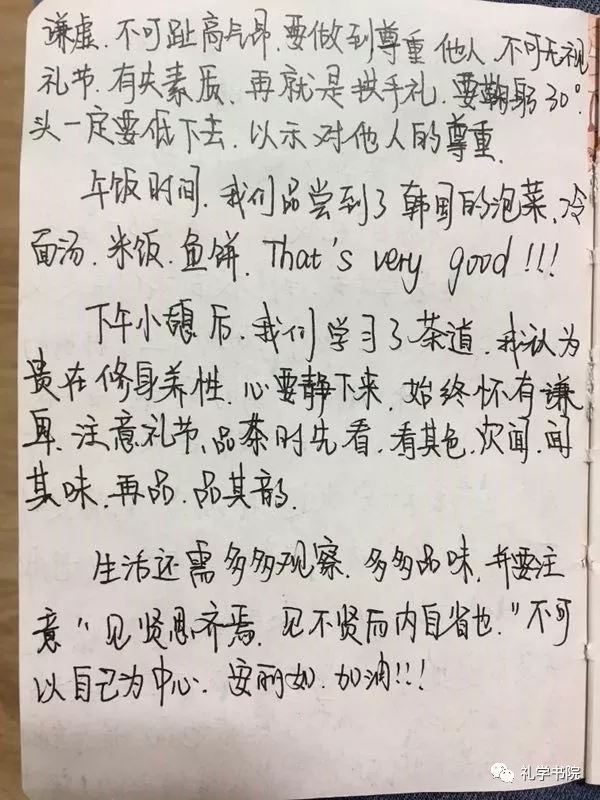 谦虚.不可趾高气昂.要做到尊重他人.不可无视
礼节.有失素质.再就是拱手礼.要鞠躬30°.
头一定要低下去.以示对他人的尊重.
午饭时间.我们品尝到了韩国的泡菜.冷
面汤.米饭.鱼饼.That's very good!!!
下午小憩后.我们学习了茶道.我认为
贵在修身养性.心要静下来.始终怀有谦
卑.注意礼节、品茶时先看.看其色.次闻.闻
其味.再品.品其韵.
生活还需多多观察.多多品味.并要注
意"见贤思齐焉.见不贤而内自省也."不可
以自己为中心.安丽如.加油!!!
礼学书院